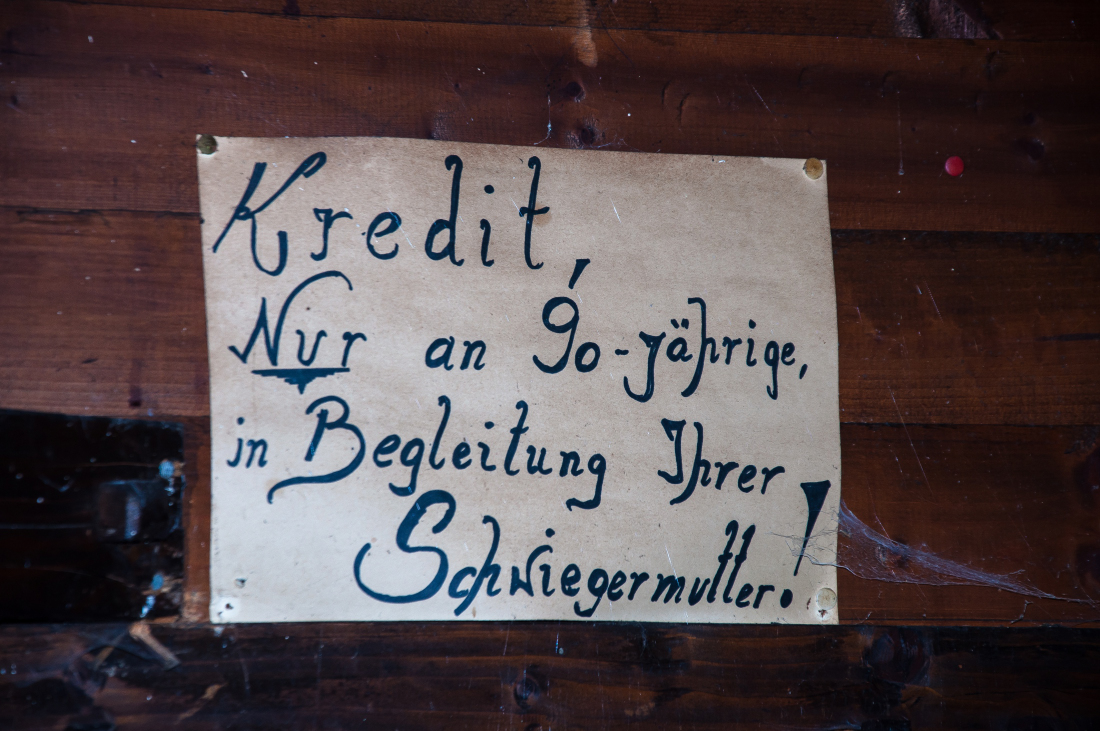 Kredit,
Nur an 90-jährige,
in Begleitung Ihrer
Schwiegermutter!